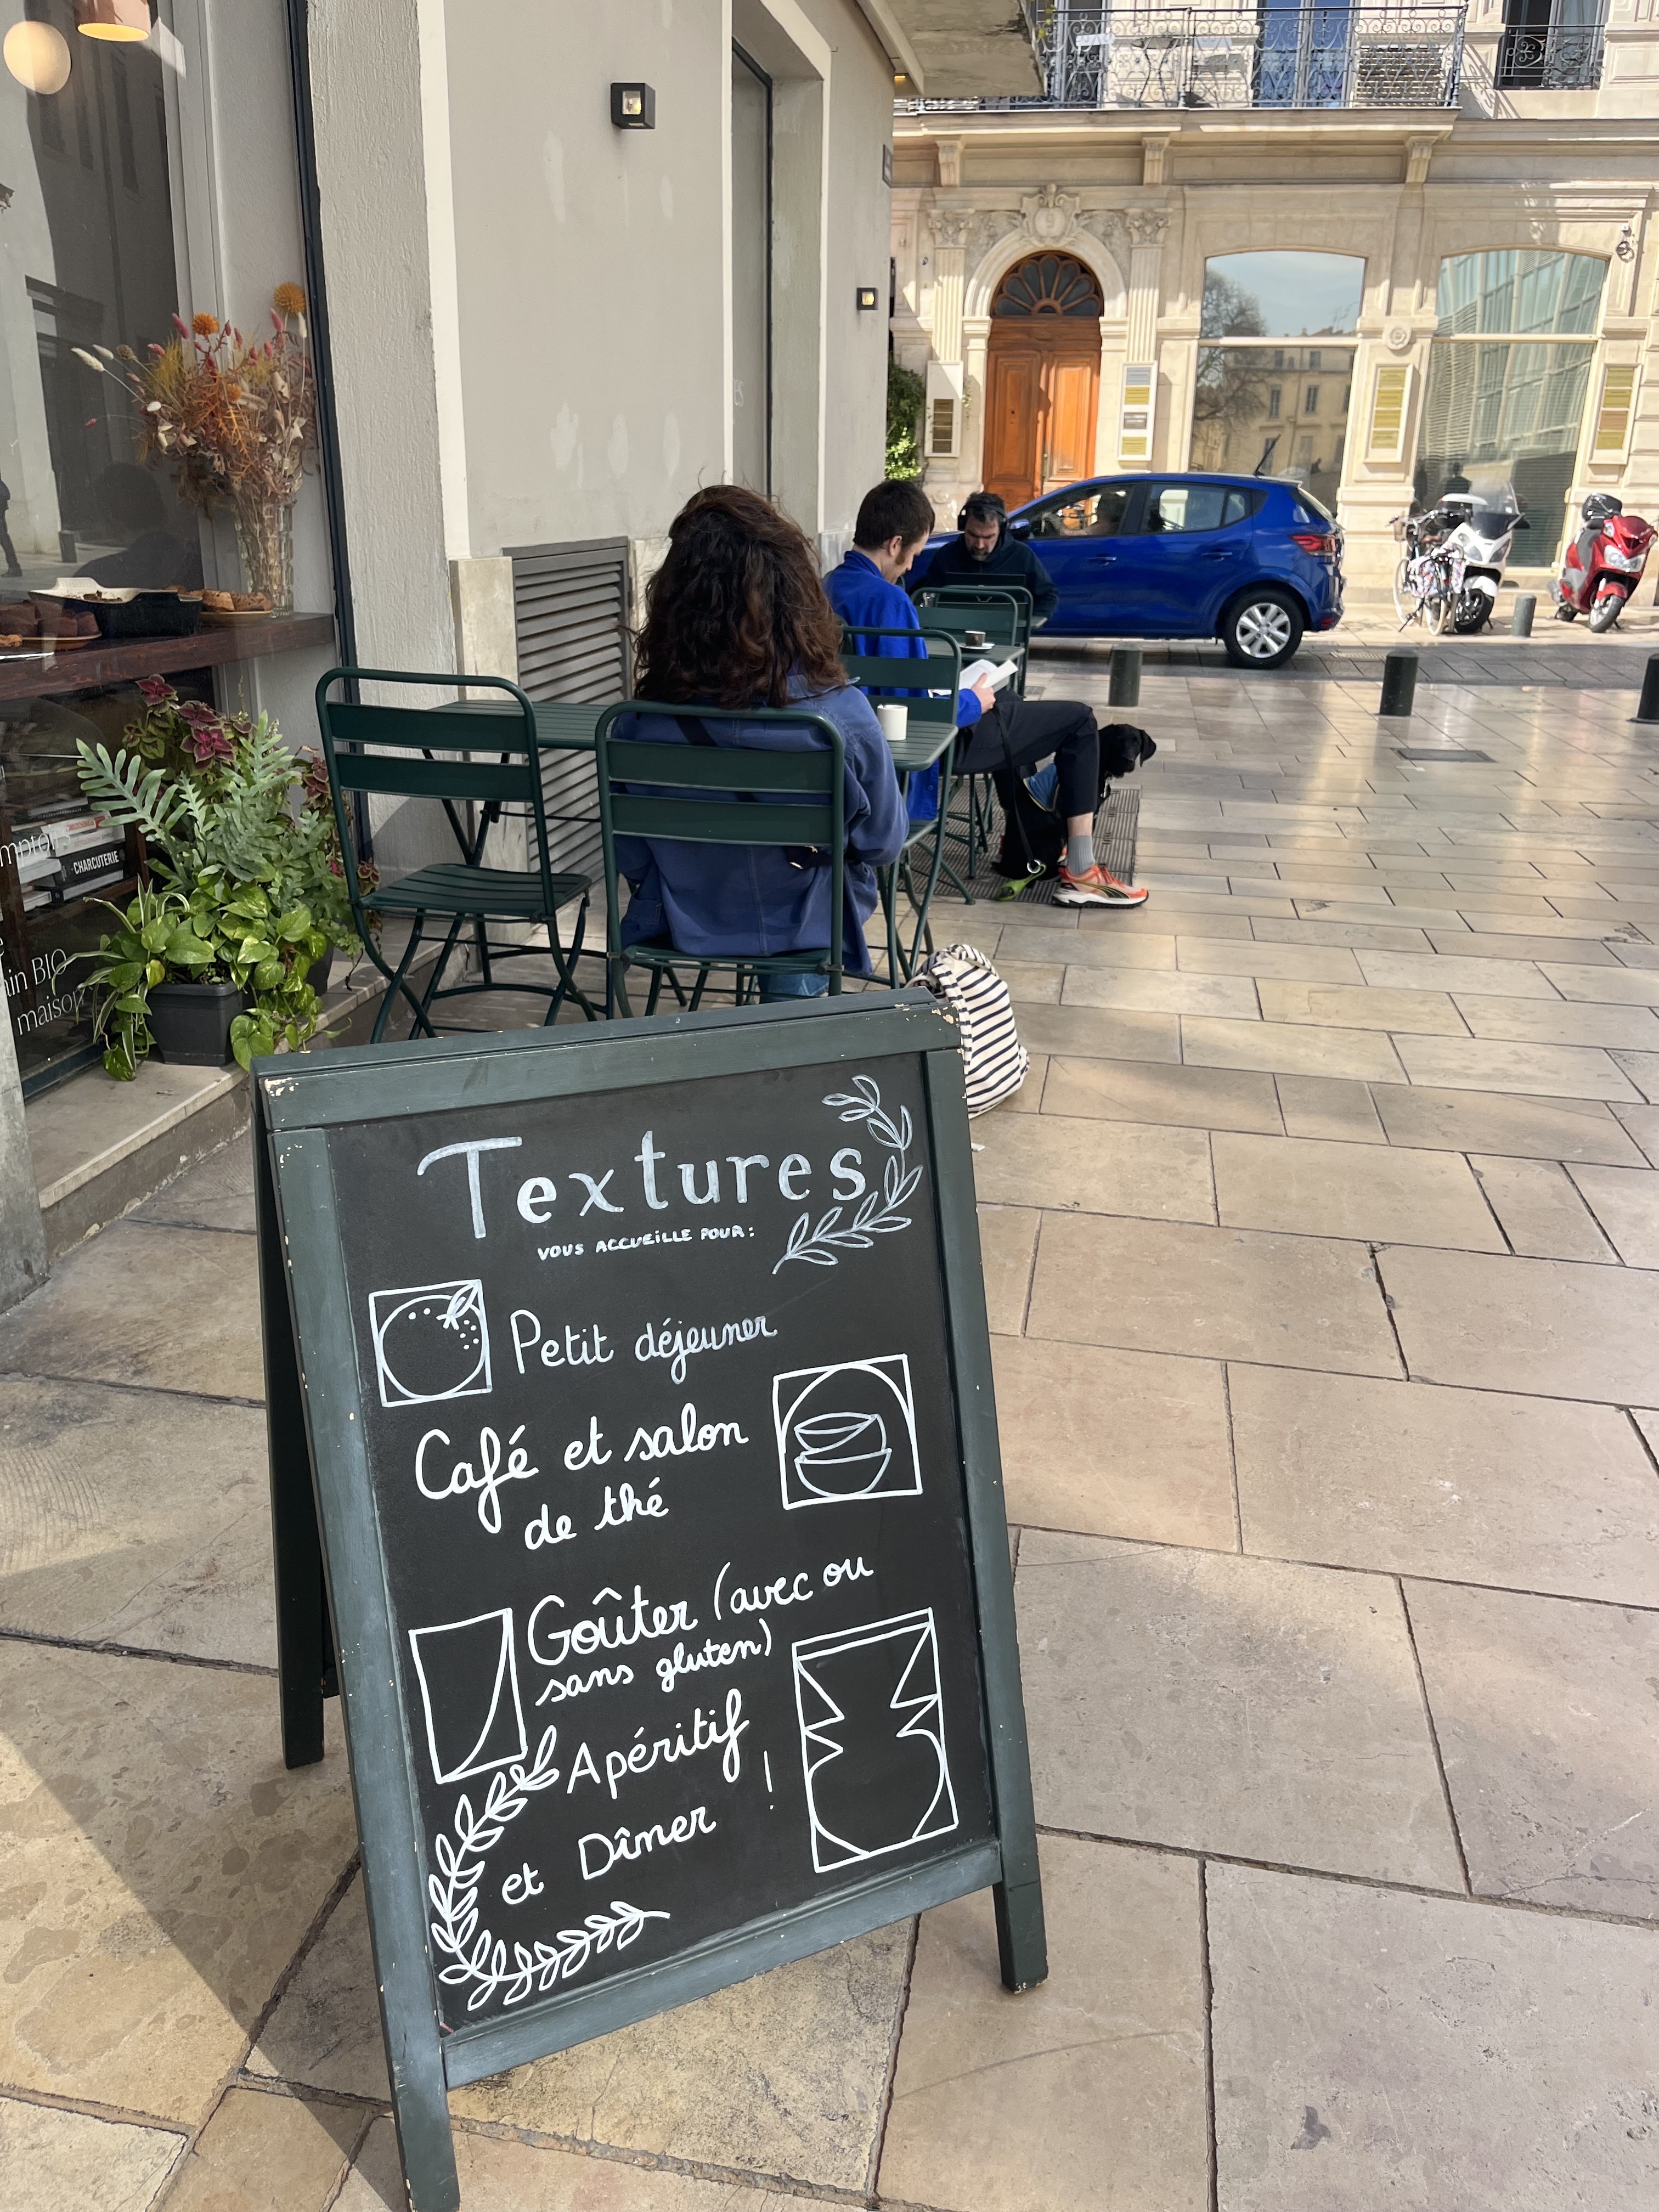 Textures
VOUS ACCUEILLE POUR:
Petit déjeuner
Café et salon
de thé
Goûter (avec ou
sans gluten)
Apéritif
et Dîner !
CHARCUTERIE
BIO
maison